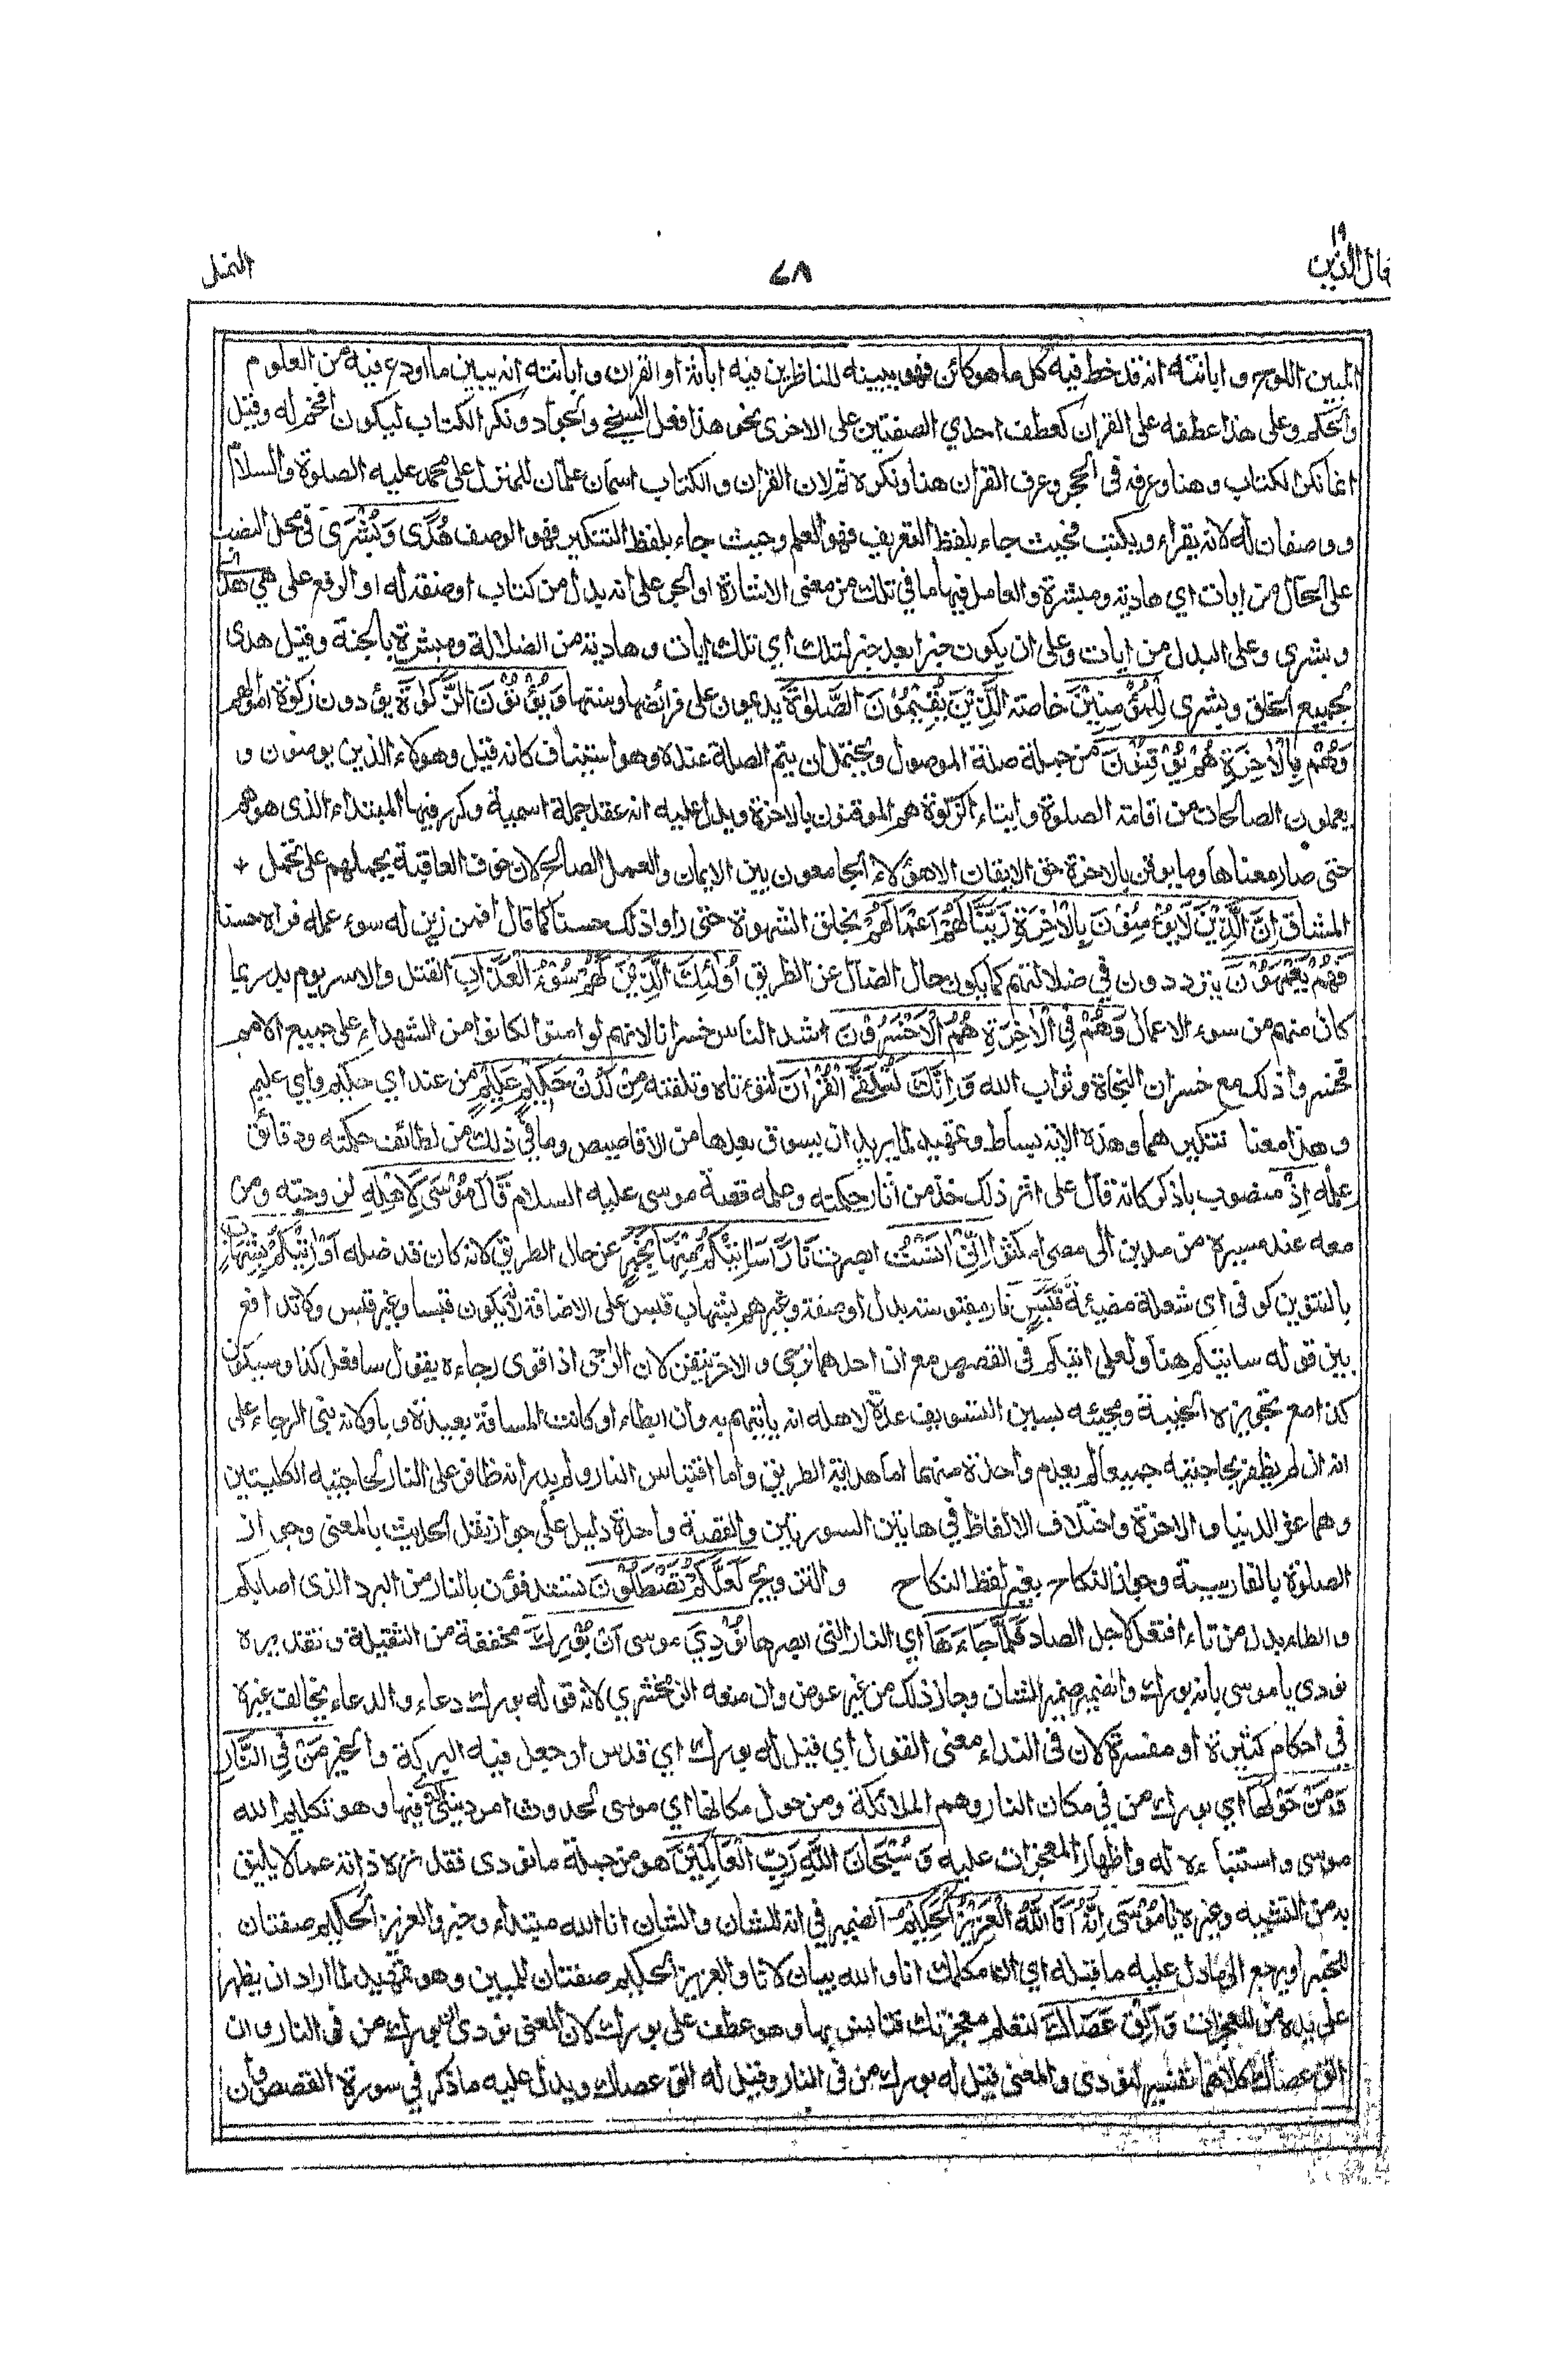 ١٩
قال الذين
٧٨
النمل
المبين اللوح و ابانته انه قد خط فيه كل ما هو كائن فهو يبينه للناظرين فيه ابانة او القران و ابانته انه يبين ما اودع فيه من العلوم
والحكم وعلى هذا عطفه على القران كعطف احدي الصفتين على الاخرى نحو هذا فعل السخي والجواد ونكر الكتاب ليكون افخم له وقيل
انما نكر الكتاب وهنا وعرفه في الحجر وعرف القران هنا ونكره ثم لان القران و الكتاب اسمان علمان للمنزل على محمد عليه الصلوة والسلام
ووصفان له لانه يقراء ويكتب فحيث جاء بلفظ التعريف فهو العلم وحيث جاء بلفظ التنكير فهو الوصف هُدًى وَبُشْرَى في محل النصب
على الحال من ايات اي هادية ومبشرة والعامل فيها ما في تلك من معنى الاشارة او الجر على انه بدل من كتاب او صفة له او الرفع على هي هدى
وبشرى وعلى البدل من ايات وعلى ان يكون خبرا بعد خبر لتلك اي تلك ايات وهادية من الضلالة ومبشرة بالجنة وقيل هدى
لجميع الخلق وبشرى لِلْمُؤْمِنِيْنَ خاصة الَّذِيْنَ يُقِيْمُوْنَ الصَّلٰوةَ يديمون على فرائضها وسننها وَيُؤْتُوْنَ الزَّكٰوةَ يؤدون زكوة اموالهم
وَهُمْ بِالْاٰخِرَةِ هُمْ يُوْقِنُوْنَ من جملة صلة الموصول ويحتمل ان يتم الصلة عنده وهو استيناف كانه قيل وهولاء الذين يومنون و
يعملون الصالحات من اقامة الصلوة وايتاء الزكوة هم الموقنون بالاخرة ويدل عليه انه عقد جملة اسمية وكرر فيها المبتداء الذى هو هم
حتى صار معناها وما يوقن بالاخرة حق الايقان الا هؤلاء الجامعون بين الايمان والعمل الصالح لان خوف العاقبة يحملهم على تحمل
المشاق اِنَّ الَّذِيْنَ لَا يُؤْمِنُوْنَ بِالْاٰخِرَةِ زَيَّنَّا لَهُمْ اَعْمَالَهُمْ بخلق الشهوة حتى راوا ذلك حسنا كما قال افمن زين له سوء عمله فراه حسنا
فَهُمْ يَعْمَهُوْنَ يترددون في ضلالتهم كما يكون حال الضال عن الطريق اُولٰئِكَ الَّذِيْنَ لَهُمْ سُوْٓءُ الْعَذَابِ القتل والاسر يوم بدر بما
كان منهم من سوء الاعمال وَهُمْ فِى الْاٰخِرَةِ هُمُ الْاَخْسَرُوْنَ اشد الناس خسرانا لانهم لو امنوا لكانوا من الشهداء على جميع الامم
فخسروا ذلك مع خسران النجاة وثواب الله وَاِنَّكَ لَتُلَقَّى الْقُرْاٰنَ لتؤتاه وتلقنه مِنْ لَّدُنْ حَكِيْمٍ عَلِيْمٍ من عند اي حكيم واي عليم
وهذا معنا تنكيرهما وهذه الاية بساط وتمهيد لما يريد ان يسوق بعدها من الاقاصيص وما في ذلك من لطائف حكمته ودقائق
علمه اِذْ منصوب باذكر كانه قال على اثر ذلك خذ من اثار حكمته وعلمه قصة موسى عليه السلام قَالَ مُوْسٰى لِاَهْلِهٖ لزوجته ومن
معه عند مسيره من مدين الى مصر امكثوا اِنِّيْ اٰنَسْتُ ابصرت نَارًا سَاٰتِيْكُمْ مِّنْهَا بِخَبَرٍ عن حال الطريق لانه كان قد ضله اَوْ اٰتِيْكُمْ بِشِهَابٍ
بالتنوين كوفى اى شعلة مضيئة قَبَسٍ نار مقبوسة بدل او صفة وغيرهم بشهاب قبس على الاضافة لانه يكون قبسا وغير قبس ولا تدافع
بين قوله ساتيكم هنا ولعلى اتيكم فى القصص مع ان احدهما ترجى و الاخر تيقن لان الراجى اذا قوى رجاءه يقول سافعل كذا وسيكون
كذا مع تجويزه الخيبة ومجيئه بسين التسويف عدة لاهله انه ياتيهم به وان ابطاء او كانت المسافة بعيدة و باو لانه بنى الرجاء على
انه ان لم يظفر بحاجتيه جميعا لم يعدم واحدة منهما اما هداية الطريق واما اقتباس النار ولم يدر انه ظافر على النار لحاجتيه الكليتين
وهما عز الدنيا و الاخرة واختلاف الالفاظ في هاتين السورتين والقصة واحدة دليل على جواز نقل الحديث بالمعنى وجواز
الصلوة بالفارسية وجواز النكاح بغير لفظ النكاح والتزويج لَعَلَّكُمْ تَصْطَلُوْنَ تستدفؤن بالنار من البرد الذى اصابكم
والطاء بدل من تاء افتعل لاجل الصاد فَلَمَّا جَاءَهَا اي النار التى ابصرها نُوْدِيَ موسى اَنْ بُوْرِكَ مخففة من الثقيلة وتقديره
نودي يا موسى بانه بورك والضمير ضمير الشان وجاز ذلك من غير عوض وان منعه الزمخشري لانه قوله بورك دعاء والدعاء يخالف غيره
في احكام كثيرة او مفسرة لان فى النداء معنى القول اي قيل له بورك اي قدس او جعل فيه البركة والخير مَنْ فِى النَّارِ
وَمَنْ حَوْلَهَا اي بورك من في مكان النار وهم الملائكة ومن حول مكانها اي موسى لحدوث امر ديني فيها وهو تكليم الله
موسى و استنباءه له واظهار المعجزات عليه وَسُبْحَانَ اللهِ رَبِّ الْعَالَمِيْنَ هو من جملة ما نودى فقد نزه ذاته عما لا يليق
به من التشبيه وغيره يَا مُوْسٰى اِنَّهٗ اَنَا اللهُ الْعَزِيْزُ الْحَكِيْمُ الضمير في انه للشان والشان انا الله مبتداء وخبر والعزيز الحكيم صفتان
للخبر او يرجع الى ما دل عليه ما قبله اي انه مكلمك انا و الله بيان لانا و العزيز الحكيم صفتان للمبين وهو تمهيد لما اراد ان يظهر
على يده من المعجزات وَاَلْقِ عَصَاكَ لتعلم معجزتك فتانس بها وهو عطف على بورك لان المعنى نودى ان بورك من فى النار وان
الق عصاك كلاهما تفسير لنودى والمعنى قيل له بورك من فى النار وقيل له الق عصاك ويدل عليه ما ذكر في سورة القصص وان